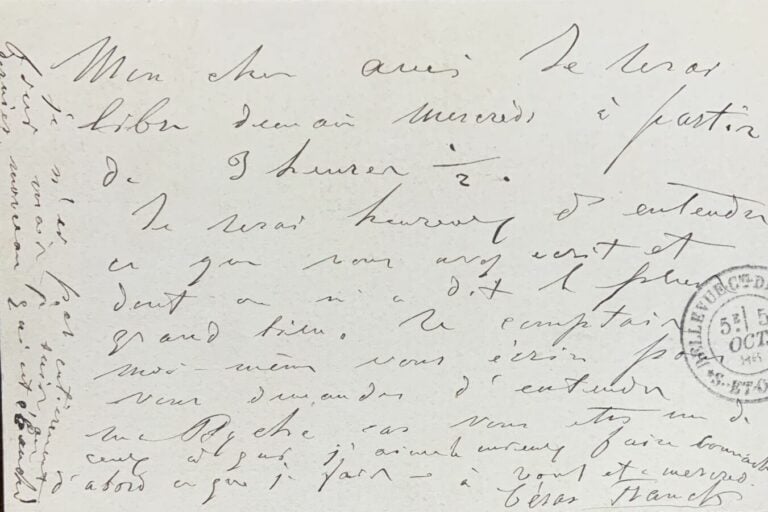 Mon cher ami Je serai
libre demain Mercredi à partir
de 3 heures ½.
Je serai heureux d'entendre
ce que vous avez écrit et
dont on m'a dit le plus
grand bien. Je comptais
moi-même vous écrire pour
vous demander d'entendre
ma Psyché car vous etes un de
ceux à qui j'aime le mieux faire connaitre
d'abord ce que je fais – à vous et à mercredi.
César Franck
je n'ai pas entièrement
fini mais je suis au
dernier morceau qui est ébauché
BELLEVUE
5E 5
OCT
S.-ET-O